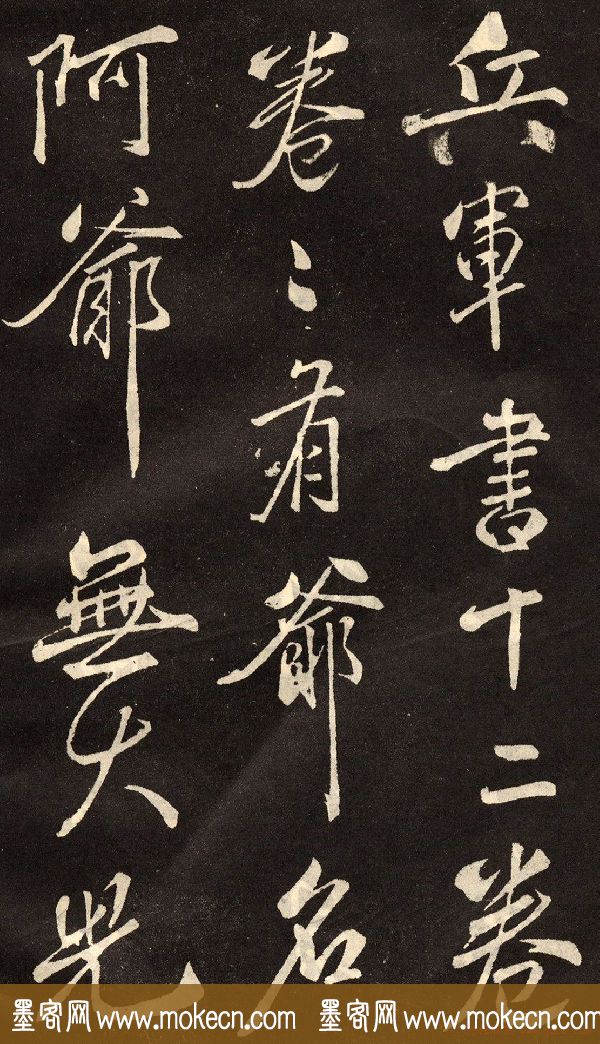 兵軍書十二卷
卷〻有爺名
阿爺無大兒
墨客网 www.mokecn.com 墨客网 www.mokecn.com